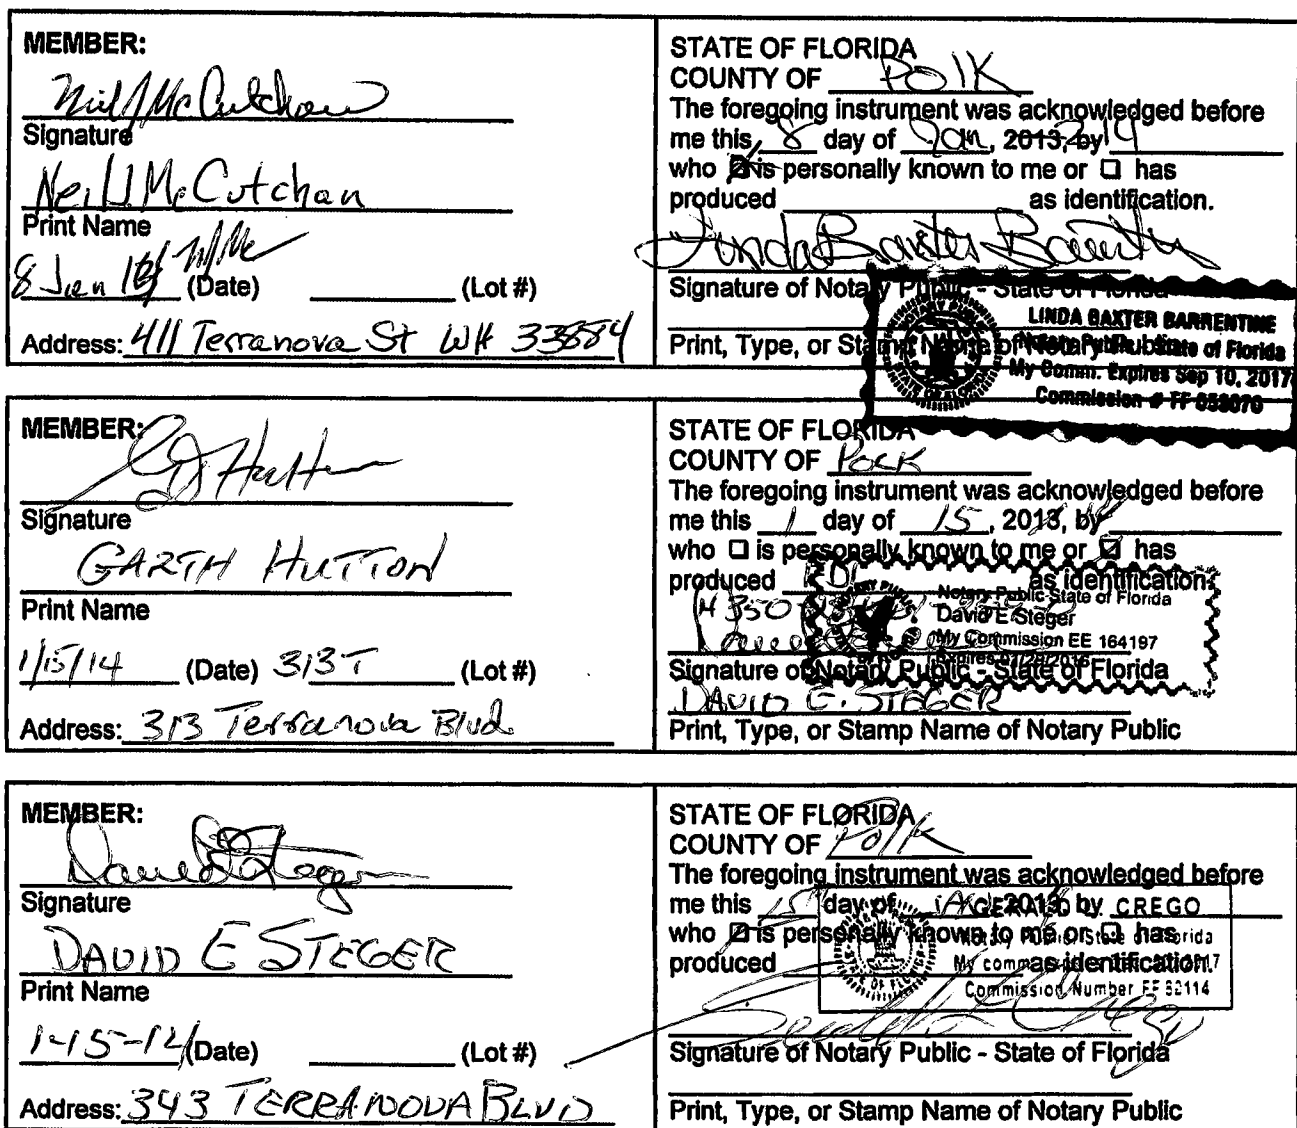 MEMBER:
Neil J McCutchan
Signature
Neil J. McCutchan
Print Name
8 Jan (Date) (Lot #)
Address: 411 Terranova St WH 33884
STATE OF FLORIDA
COUNTY OF Polk
The foregoing instrument was acknowledged before
me this 8 day of Jan, 2013, by 2014
who ☒ is personally known to me or ☐ has
produced as identification.
Linda Baxter Barrentine
Signature of Notary Public - State of Florida
Print, Type, or Stamp Name of Notary Public
LINDA BAXTER BARRENTINE
Notary Public - State of Florida
My Comm. Expires Sep 10, 2017
Commission # FF
MEMBER:
GJ Hutton
Signature
GARTH HUTTON
Print Name
1/15/14 (Date) 313T (Lot #)
Address: 313 Terranova Blvd.
STATE OF FLORIDA
COUNTY OF POLK
The foregoing instrument was acknowledged before
me this 1 day of 15, 2013, by
who ☐ is personally known to me or ☑ has
produced as identification.
H350
Notary Public State of Florida
David E Steger
My Commission EE 164197
Expires 01/29/2016
Signature of Notary Public - State of Florida
DAVID E. STEGER
Print, Type, or Stamp Name of Notary Public
MEMBER:
David E Steger
Signature
DAVID E STEGER
Print Name
1-15-14 (Date) (Lot #)
Address: 343 TERRANOVA BLVD
STATE OF FLORIDA
COUNTY OF Polk
The foregoing instrument was acknowledged before
me this 15th day of JAN 2013, by
who ☑ is personally known to me or ☐ has
produced as identification.
GERALD L. CREGO
Notary Public - State of Florida
My comm.
Commission Number FF
Signature of Notary Public - State of Florida
Print, Type, or Stamp Name of Notary Public